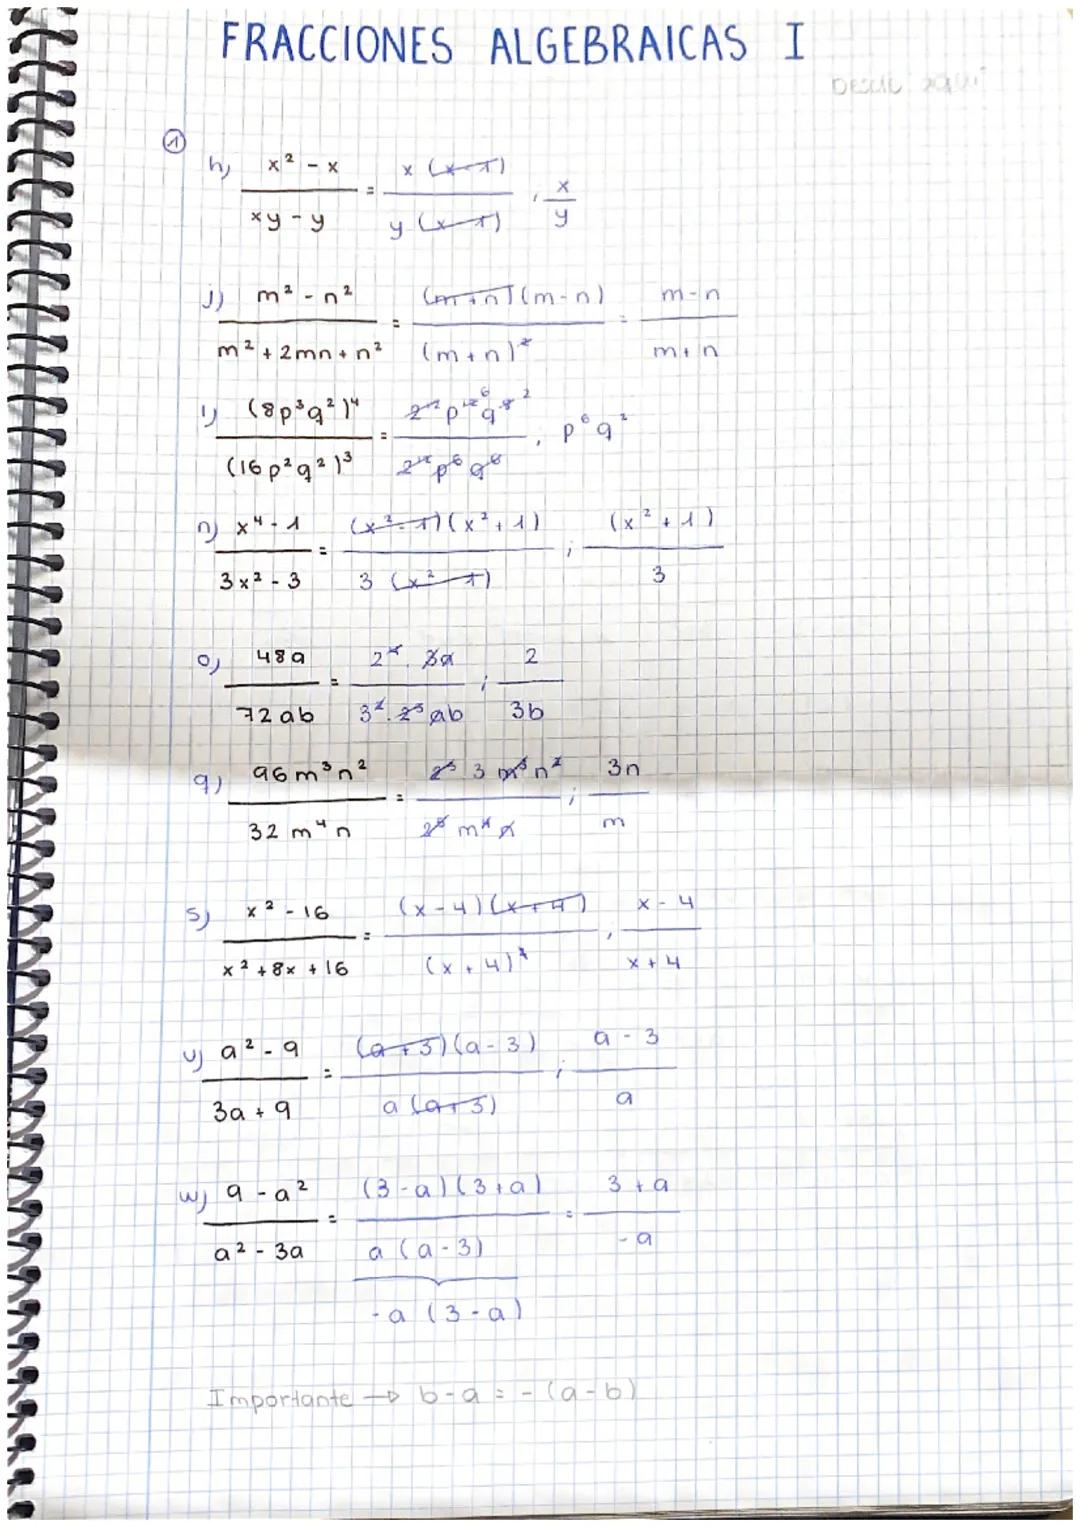 FRACCIONES ALGEBRAICAS I
Desde aquí
①
h) x² - x / xy - y = x (x-1) / y (x-1) , x / y
j) m² - n² / m² + 2mn + n² = (m+n)(m-n) / (m+n)² = m-n / m+n
l) (8p³q²)⁴ / (16p²q²)³ = 2¹² p¹² ⁶ q⁸ ² / 2¹² p⁶ q⁶ , p⁶q²
n) x⁴ - 1 / 3x² - 3 = (x²-1)(x²+1) / 3 (x²-1) ; (x²+1) / 3
o) 48a / 72ab = 2⁴ . 3a / 3² . 2³ ab ; 2 / 3b
q) 96m³n² / 32m⁴n = 2⁵ 3 m³ n² / 2⁵ m⁴ n ; 3n / m
s) x² - 16 / x² + 8x + 16 = (x-4)(x+4) / (x+4)² , x-4 / x+4
u) a² - 9 / 3a + 9 = (a+3)(a-3) / a (a+3) ; a-3 / a
w) 9 - a² / a² - 3a = (3-a)(3+a) / a (a-3) = 3+a / -a
-a (3-a)
Importante → b-a = -(a-b)